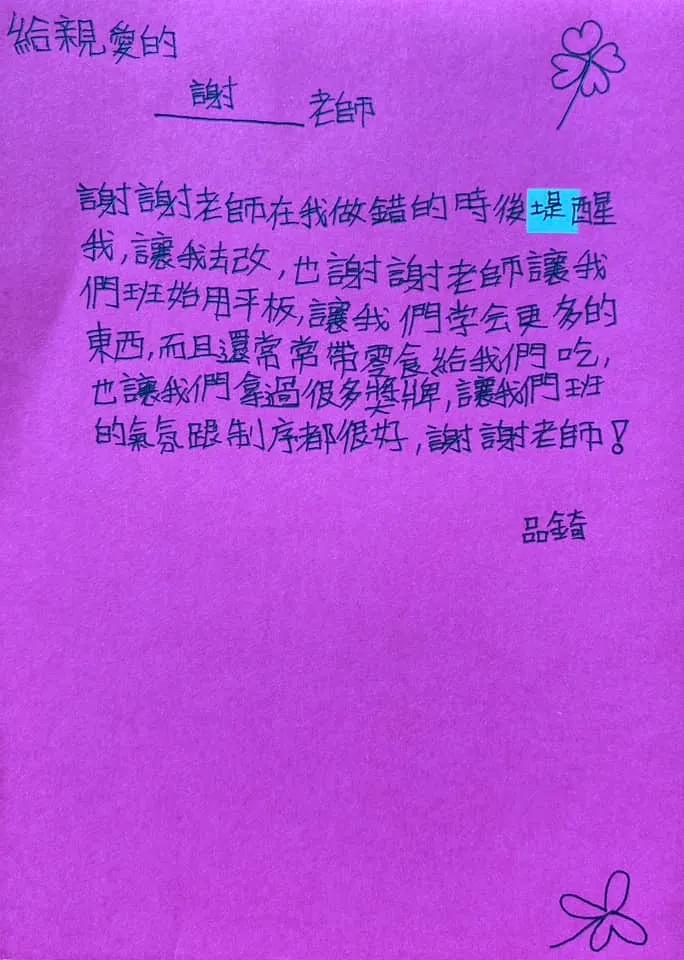 給親愛的
謝 老師
謝謝老師在我做錯的時後堤醒
我,讓我去改,也謝謝老師讓我
們班始用平板,讓我們学会更多的
東西,而且還常常帶零食給我們吃,
也讓我們拿過很多獎牌,讓我們班
的氣氛跟制序都很好,謝謝老師!
品錡